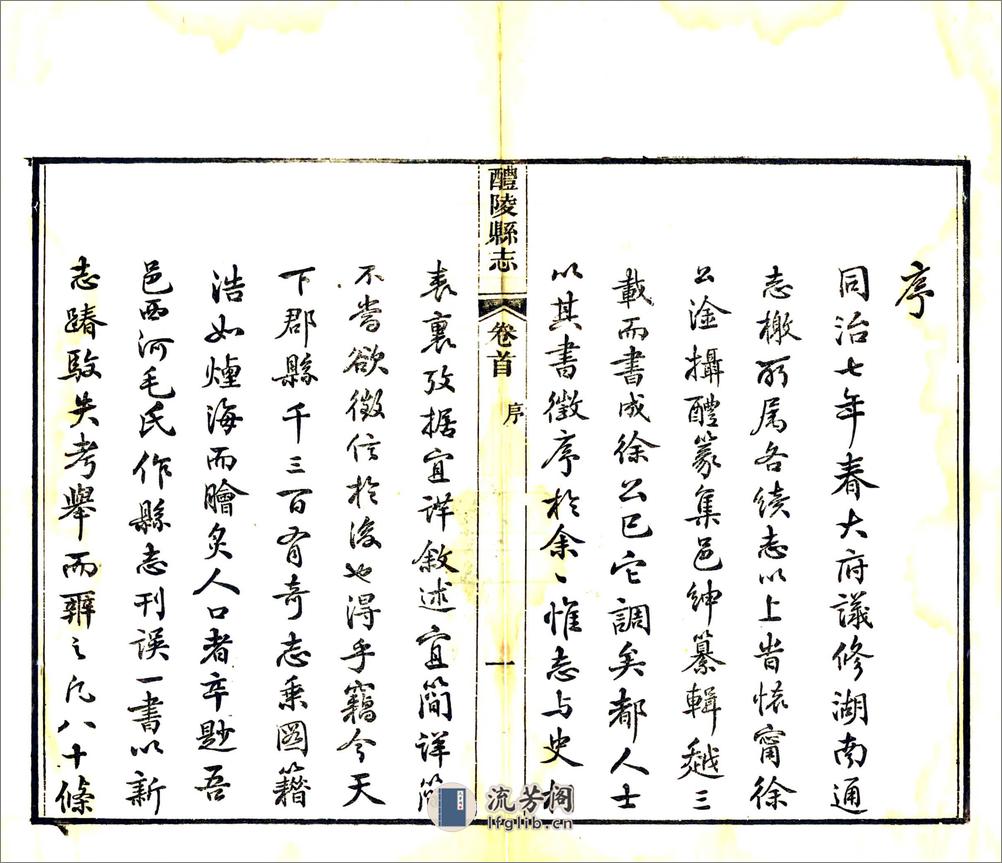 序
同治七年春大府議修湖南通
志檄所属各續志以上時懷甯徐
公淦攝醴篆集邑紳纂輯越三
載而書成徐公已它調矣都人士
以其書徵序於余〻惟志与史
醴陵縣志
卷首
序
一
表裏攷据宜詳敘述宜簡詳簡
不當欲徵信於後也得乎竊今天
下郡縣千三百有奇志乘圖籍
浩如煙海而膾炙人口者卒尟吾
邑西河毛氏作縣志刊误一書以新
志踳駁失考舉而辨之凡八十條
流芳阁
lfglib.cn